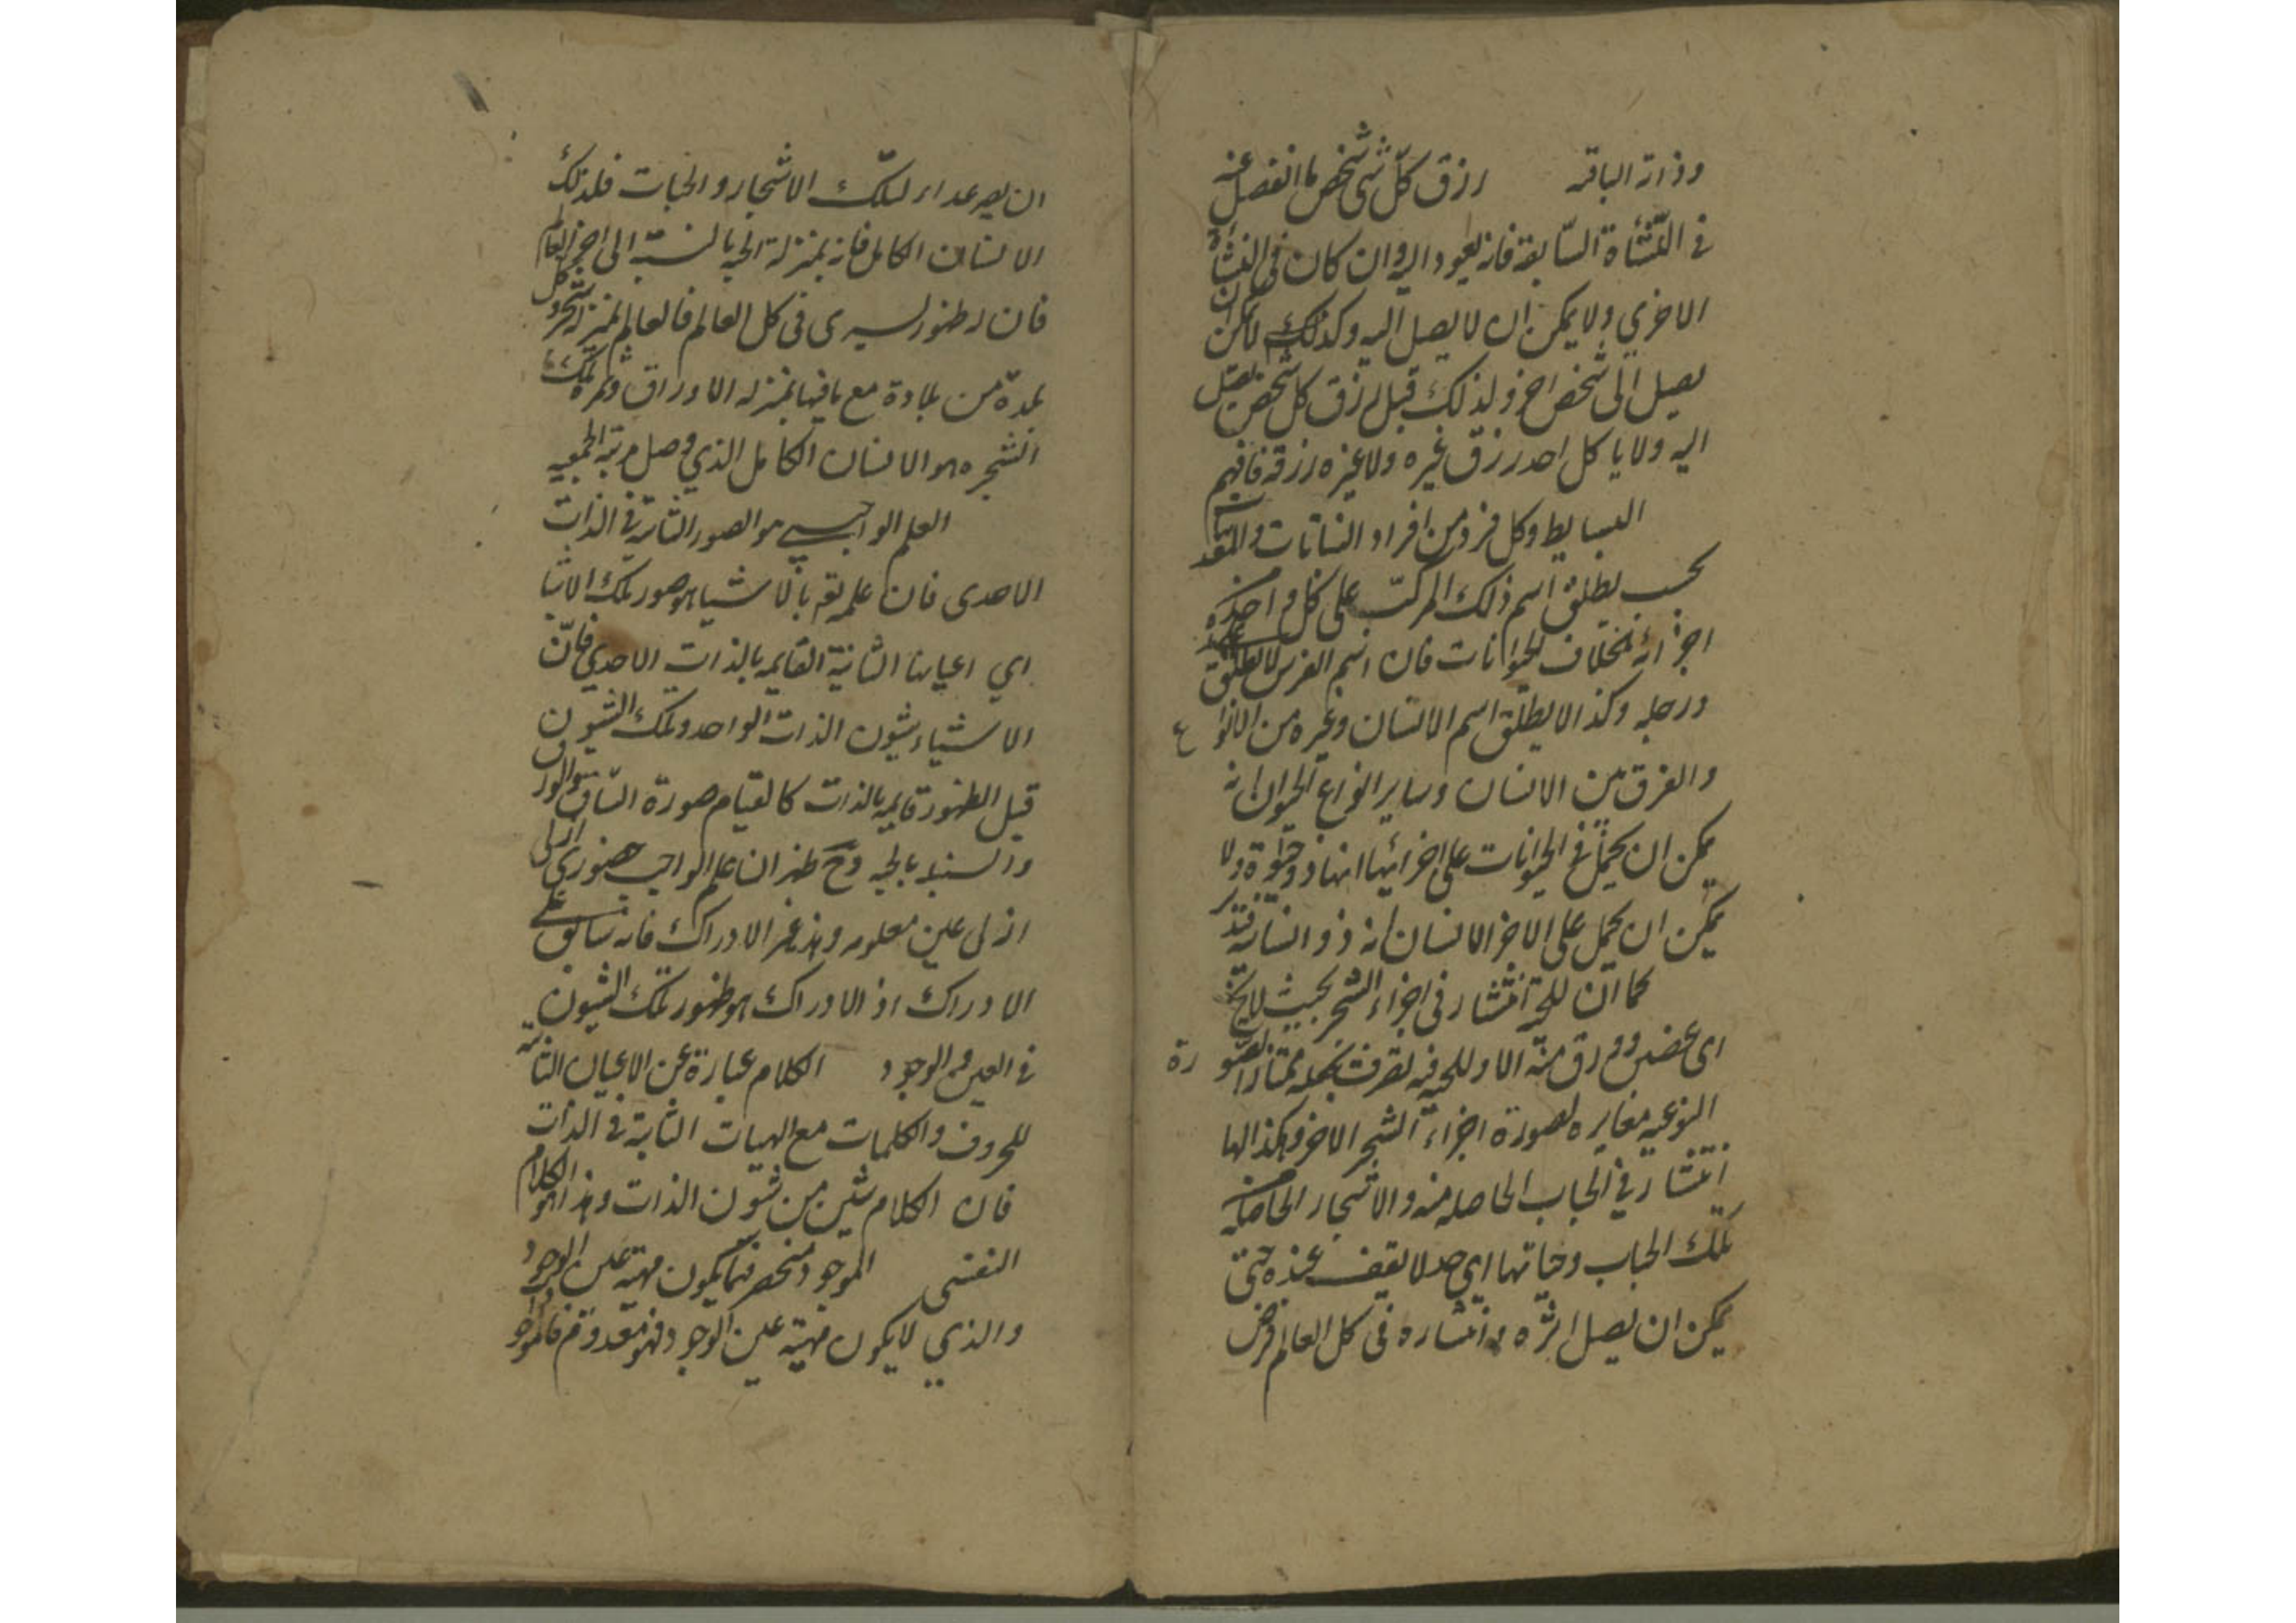 وذراته الباقية رزق كلّ شخص ما انفصل عنه
في النشأة السّابقة فانه يعود اليه وان كان في النشأة
الاخرى ولا يمكن ان لا يصل اليه وكذلك لا يمكن ان
يصل الى شخص اخر ولذلك قيل رزق كل شخص يصل
اليه ولا ياكل احد رزق غيره ولا غيره رزقه فافهم
البسايط وكل فرد من افراد النباتات والمعدنيات
بحسب يطلق اسم ذلك المركّب على كل واحد من
اجزائه بخلاف الحيوانات فان اسم الفرس لا يطلق على يده
ورجله وكذا لا يطلق اسم الانسان وغيره من الانواع
والفرق بين الانسان وساير انواع الحيوان انه
يمكن ان يحمل في الحيوانات على اجزائها انها ذو حيوة ولا
يمكن ان يحمل على الاجزاء الانسان انه ذو انسانية فتدبر
كما ان للحبة انتشار في اجزاء الشجر بحيث لا يخ
اى غصن وورق منه الا وللحبة فيه تصرف بجملة ممتازا لصورة
النوعية مغايرة لصورة اجزاء الشجر الاخر وهكذا لها
انتشار في الحباب الحاصله منه والاشجار الحاصلة من
تلك الحباب وحباتها اى حد لا يقف عنده حتى
يمكن ان يصل اثره وانتشاره في كل العالم فرض
ان يصير غذاء لتلك الاشجار والحبات فلذلك
الانسان الكامل فانه بمنزلة الحبة بالنسبة الى اجزاء العالم
فان ظهور يسرى في كل العالم فالعالم بمنزلة شجر وكل
بلدة من بلاده مع ما فيها بمنزله الاوراق وثمرة تلك
الشجره هو الانسان الكامل الذي وصل مرتبة الجمعية
العلم الواجبي هو الصور الثابتة في الذات
الاحدى فان علمه تعم بالاشياء هو صور تلك الاشيا
اي اعيانها الثابتة القايمه بالذات الاحدي فانّ
الاشياء شيون الذات الواحد وتلك الشيون
قبل الظهور قايمة بالذات كالقيام صورة الساق والورق
والسنبلة بالحبه وح ظهر ان علم الواجب حضوري ازلى
ازلى عين معلومه وهذا غير الادراك فانه سابق على
الادراك اذ الادراك هو ظهور تلك الشيون
في العين والوجود الكلام عبارة عن الاعيان الثابتة
للحروف والكلمات مع الهيات الثابتة في الذات
فان الكلام شين من شيون الذات وهذا هو الكلام
النفسى الموجود منحصر فيما يكون مهيته عين الوجود
والذي لا يكون مهيته عين الوجود فهو معدوم فالموجود